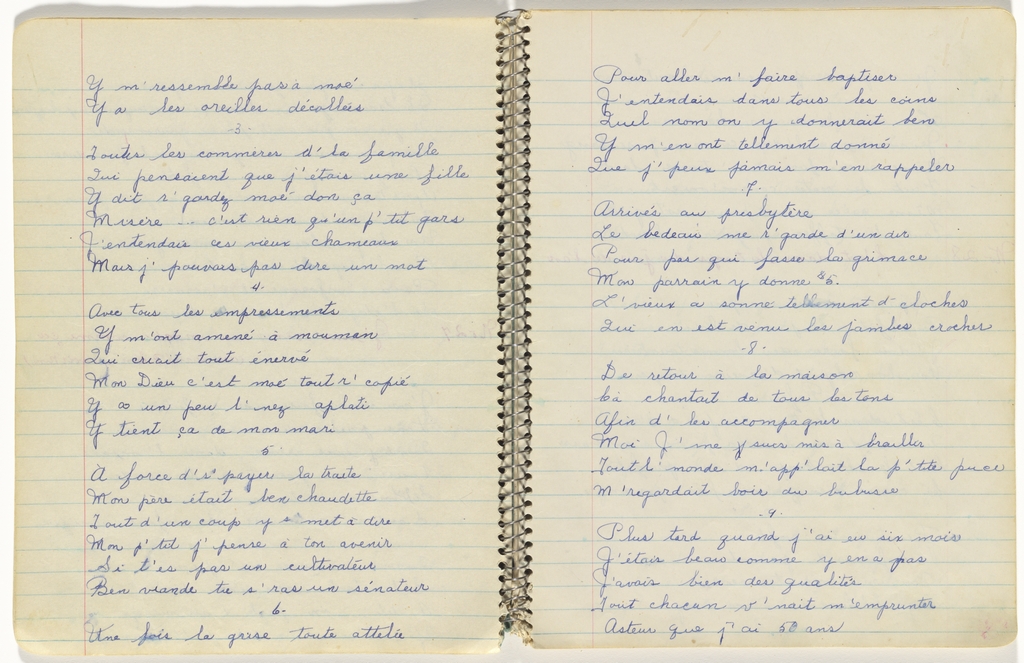 Y m'ressemble pas à moé
Y a les oreilles décollées
-3-
Toutes les commères d'la famille
Qui pensaient que j'étais une fille
Y dit r'gardez moé don ça
Misère ... c'est rien qu'un p'tit gars
J'entendais ces vieux chameaux
Mais j'pouvais pas dire un mot
4.
Avec tous les empressements
Y m'ont amené à mouman
Qui criait tout énervé
Mon Dieu c'est moé tout r'copié
Y a un peu l'nez aplati
Y tient ça de mon mari
5.
A force d's'payer la traite
Mon père était ben chaudette
Tout d'un coup y s'met à dire
Mon p'tit j'pense à ton avenir
Si t'es pas un cultivateur
Ben viande tu s'ras un sénateur
-6-
Une fois la grise toute attelée
Pour aller m'faire baptiser
J'entendais dans tous les coins
Quel nom on y donnerait ben
Y m'en ont tellement donné
Que j'peux jamais m'en rappeler
-7-
Arrivés au presbytère
Le bedeau me r'garde d'un air
Pour pas qui fasse la grimace
Mon parrain y donne $5.
L'vieux a sonné tellement d'cloches
Qui en est venu les jambes croches
-8-
De retour à la maison
Ça chantait de tous les tons
Afin d'les accompagner
Moi J'me suis mis à brailler
Tout l'monde m'app'lait la p'tite puce
M'regardait boir du
-9-
Plus tard quand j'ai eu six mois
J'étais beau comme y en a pas
J'avais bien des qualités
Tout chacun v'nait m'emprunter
Asteur que j'ai 50 ans